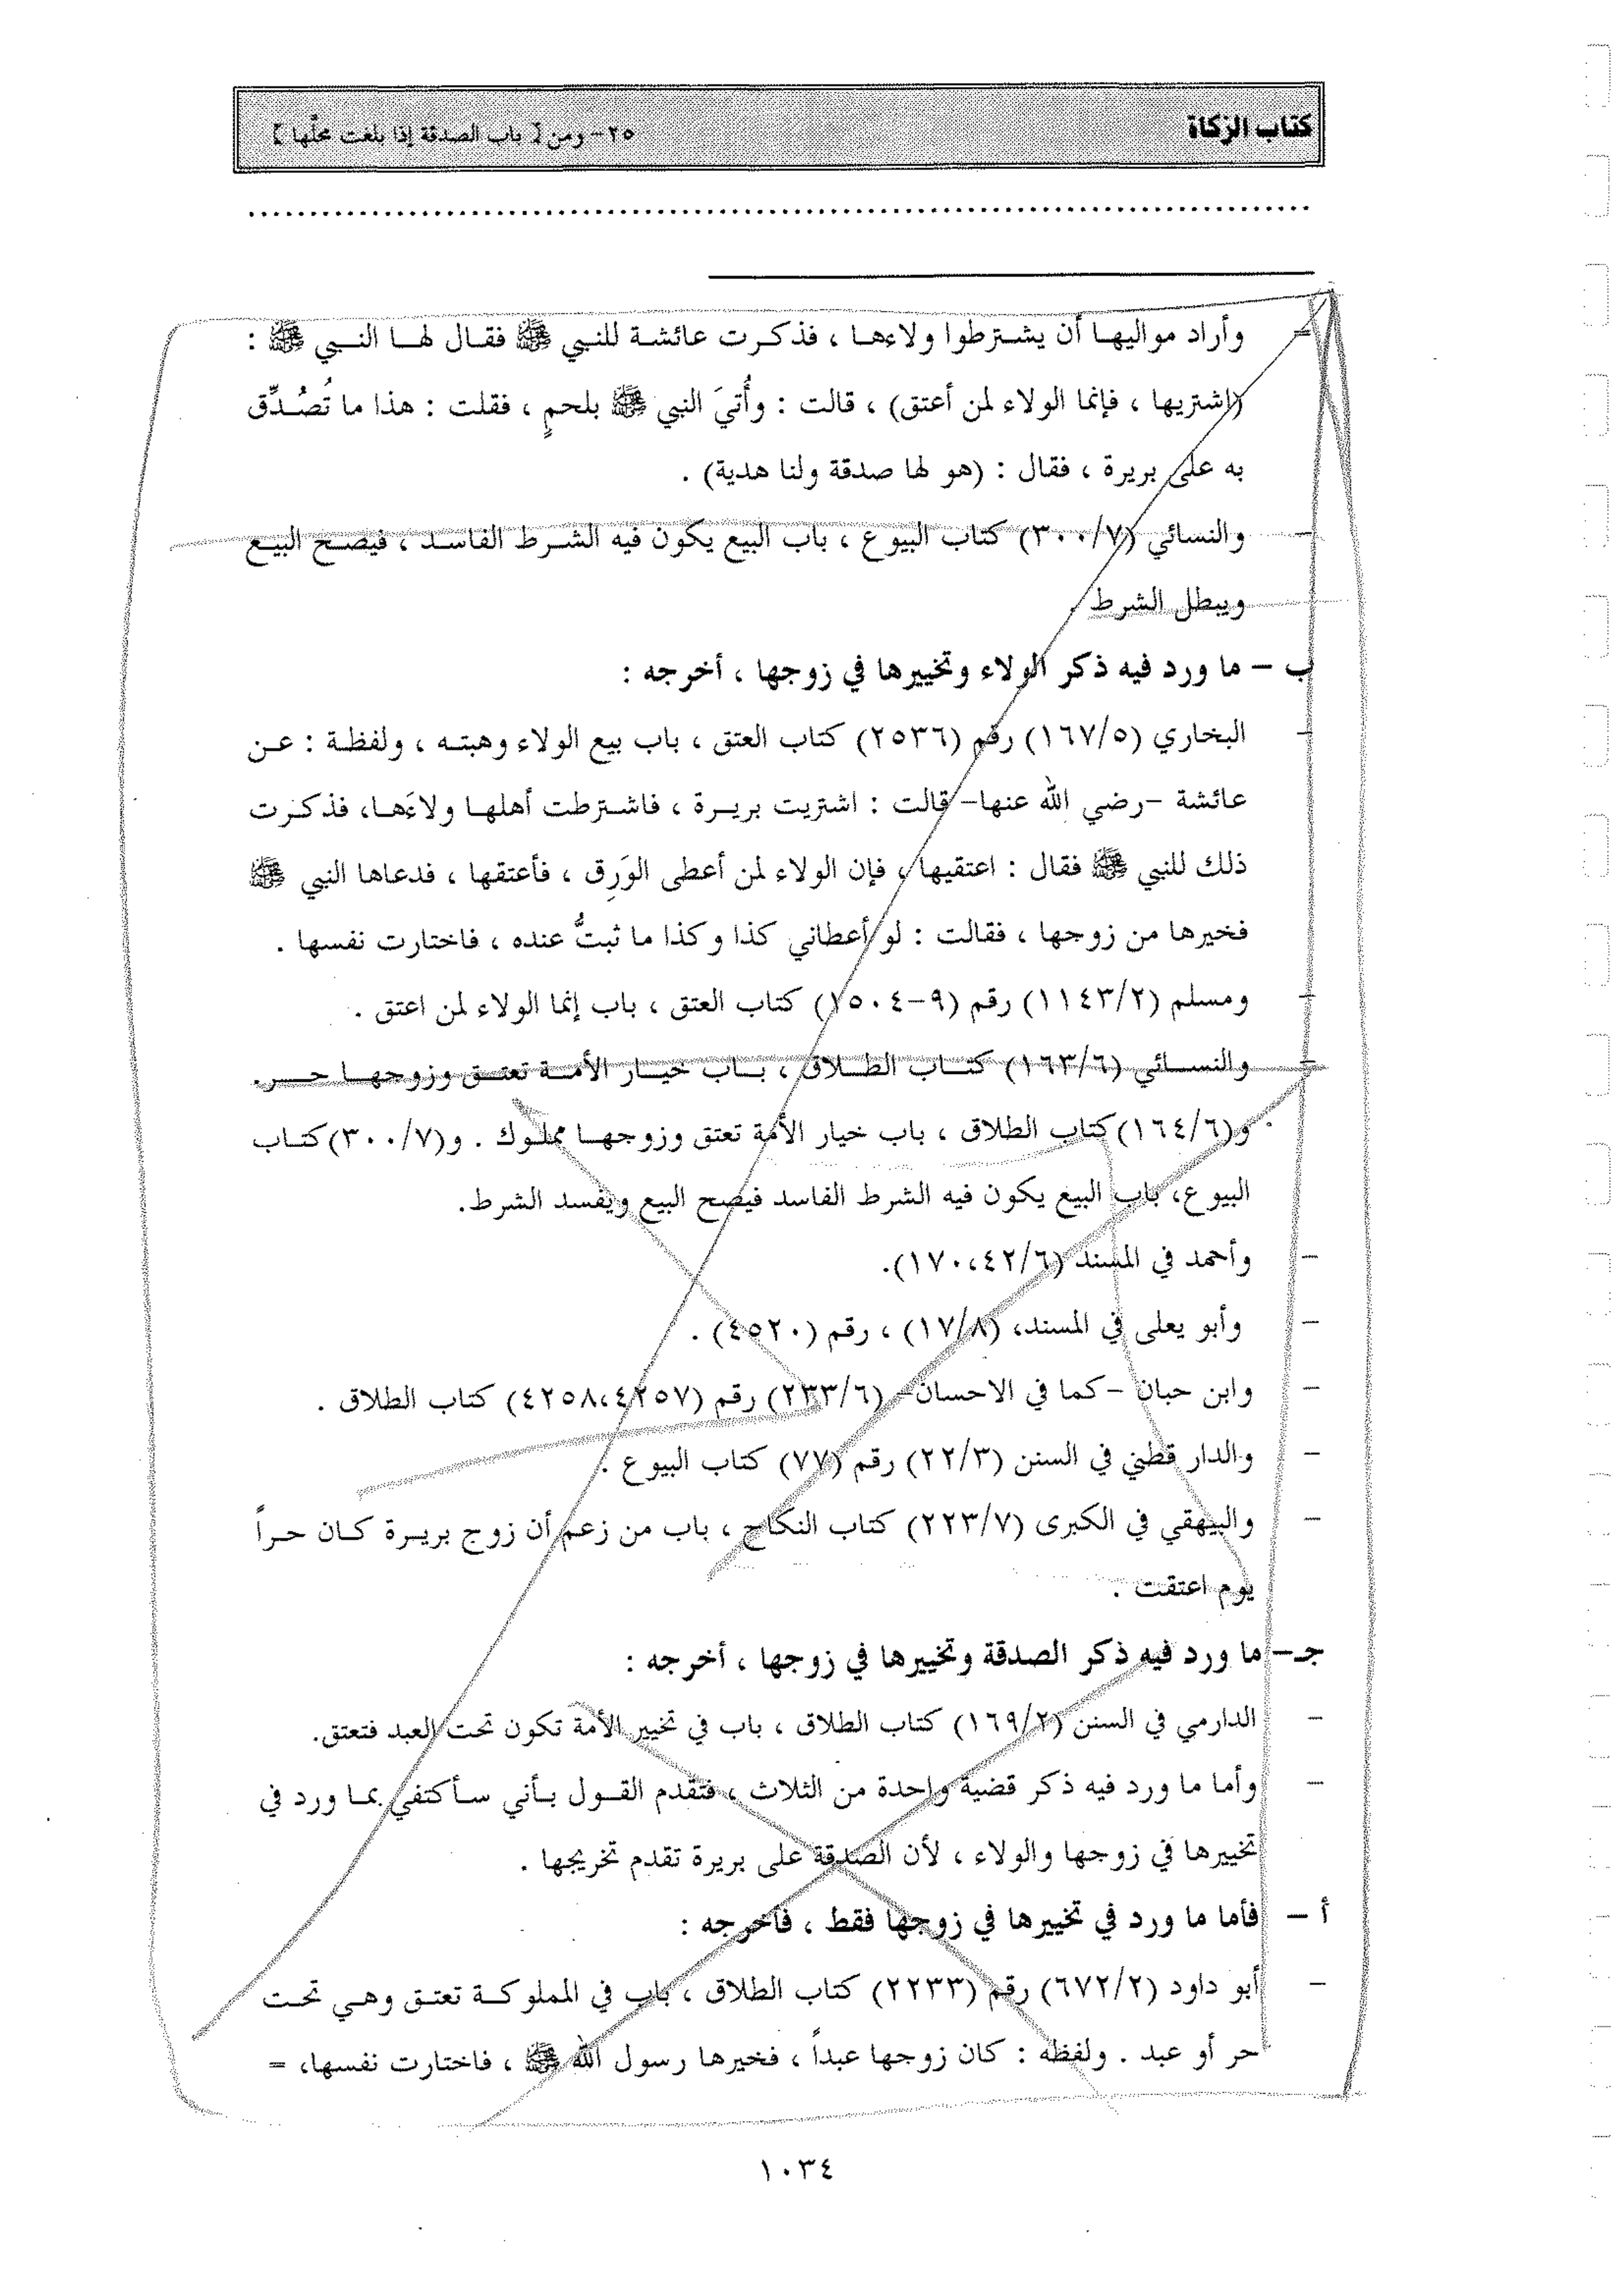 كتاب الزكاة
٢٥- ومن [ باب الصدقة إذا بلغت محلّها ]
= وأراد مواليها أن يشترطوا ولاءها ، فذكرت عائشة للنبي ﷺ فقال لها النبي ﷺ :
(اشتريها ، فإنما الولاء لمن أعتق) ، قالت : وأُتيَ النبي ﷺ بلحمٍ ، فقلت : هذا ما تُصُدِّق
به على بريرة ، فقال : (هو لها صدقة ولنا هدية) .
– والنسائي (٣٠٠/٧) كتاب البيوع ، باب البيع يكون فيه الشرط الفاسد ، فيصح البيع
ويبطل الشرط .
ب – ما ورد فيه ذكر الولاء وتخييرها في زوجها ، أخرجه :
– البخاري (١٦٧/٥) رقم (٢٥٣٦) كتاب العتق ، باب بيع الولاء وهبته ، ولفظة : عن
عائشة -رضي الله عنها- قالت : اشتريت بريرة ، فاشترطت أهلها ولاءَها، فذكرت
ذلك للنبي ﷺ فقال : اعتقيها ، فإن الولاء لمن أعطى الوَرِق ، فأعتقها ، فدعاها النبي ﷺ
فخيرها من زوجها ، فقالت : لو أعطاني كذا وكذا ما ثبتُّ عنده ، فاختارت نفسها .
– ومسلم (١١٤٣/٢) رقم (٩-١٥٠٤) كتاب العتق ، باب إنما الولاء لمن اعتق .
– والنسائي (١٦٣/٦) كتاب الطلاق ، باب خيار الأمة تعتق وزوجها حر.
و(١٦٤/٦) كتاب الطلاق ، باب خيار الأمة تعتق وزوجها مملوك . و(٣٠٠/٧) كتاب
البيوع، باب البيع يكون فيه الشرط الفاسد فيصح البيع ويفسد الشرط.
– وأحمد في المسند (٤٢/٦،١٧٠).
– وأبو يعلى في المسند، (١٧/٨) ، رقم (٤٥٢٠) .
– وابن حبان -كما في الاحسان- (٢٣٣/٦) رقم (٤٢٥٧،٤٢٥٨) كتاب الطلاق .
– والدار قطني في السنن (٢٢/٣) رقم (٧٧) كتاب البيوع .
– والبيهقي في الكبرى (٢٢٣/٧) كتاب النكاح ، باب من زعم أن زوج بريرة كان حراً
يوم اعتقت .
جـ– ما ورد فيه ذكر الصدقة وتخييرها في زوجها ، أخرجه :
– الدارمي في السنن (١٦٩/٢) كتاب الطلاق ، باب في تخيير الأمة تكون تحت العبد فتعتق.
– وأما ما ورد فيه ذكر قضية واحدة من الثلاث ، فتقدم القول بأني سأكتفي بما ورد في
تخييرها في زوجها والولاء ، لأن الصدقة على بريرة تقدم تخريجها .
أ – فأما ما ورد في تخييرها في زوجها فقط ، فأخرجه :
– أبو داود (٦٧٢/٢) رقم (٢٢٣٣) كتاب الطلاق ، باب في المملوكة تعتق وهي تحت
حر أو عبد . ولفظه : كان زوجها عبداً ، فخيرها رسول الله ﷺ ، فاختارت نفسها، =
١٠٣٤